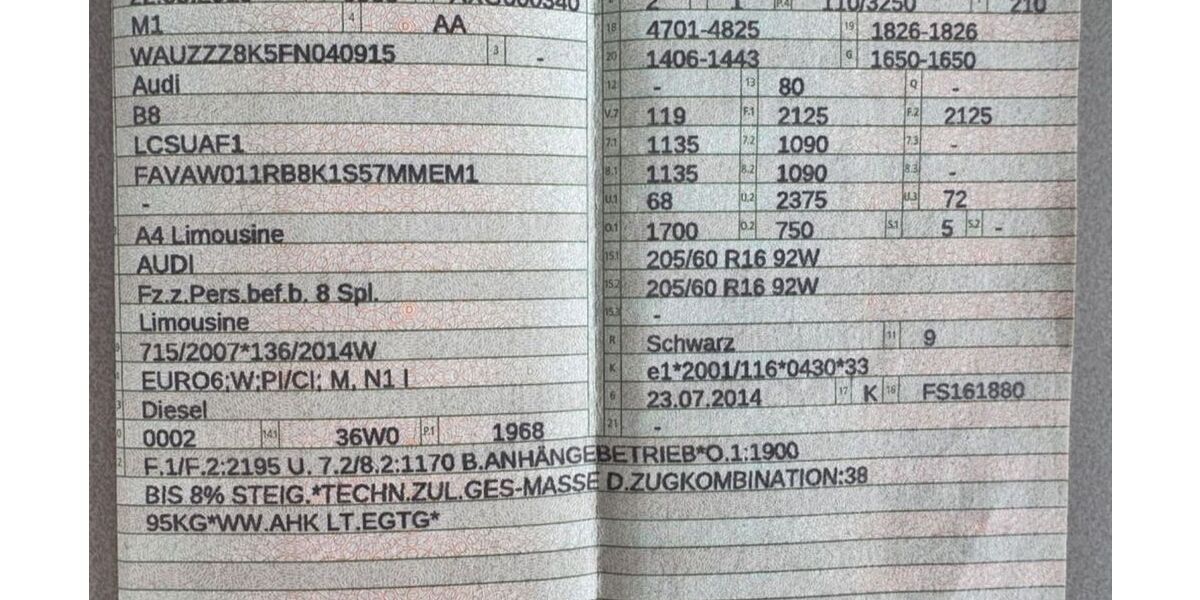 2 1 P.4 110/3250 210
M1 4 AA
WAUZZZ8K5FN040915 3 -
Audi
B8
LCSUAF1
FAVAW011RB8K1S57MMEM1
-
A4 Limousine
AUDI
Fz.z.Pers.bef.b. 8 Spl.
Limousine
715/2007*136/2014W
EURO6;W;PI/CI; M, N1 I
Diesel
0002 14.1 36W0 P.1 1968
18 4701-4825 19 1826-1826
20 1406-1443 G 1650-1650
12 - 13 80 Q -
V.7 119 F.1 2125 F.2 2125
7.1 1135 7.2 1090 7.3 -
8.1 1135 8.2 1090 8.3 -
U.1 68 U.2 2375 U.3 72
O.1 1700 O.2 750 S.1 5 S.2 -
15.1 205/60 R16 92W
15.2 205/60 R16 92W
15.3 -
R Schwarz 11 9
K e1*2001/116*0430*33
6 23.07.2014 17 K 16 FS161880
21 -
F.1/F.2:2195 U. 7.2/8.2:1170 B.ANHÄNGEBETRIEB*O.1:1900
BIS 8% STEIG.*TECHN.ZUL.GES-MASSE D.ZUGKOMBINATION:38
95KG*WW.AHK LT.EGTG*